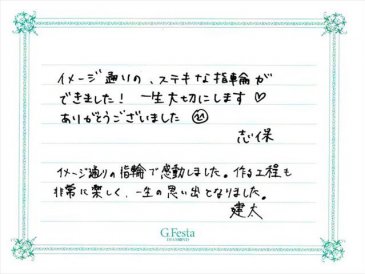 イメージ通りの、ステキな指輪が
できました! 一生大切にします♡
ありがとうございました
志保
イメージ通りの指輪で感動しました。作る工程も
非常に楽しく、一生の思い出となりました。
建太
G.Festa
DIAMOND